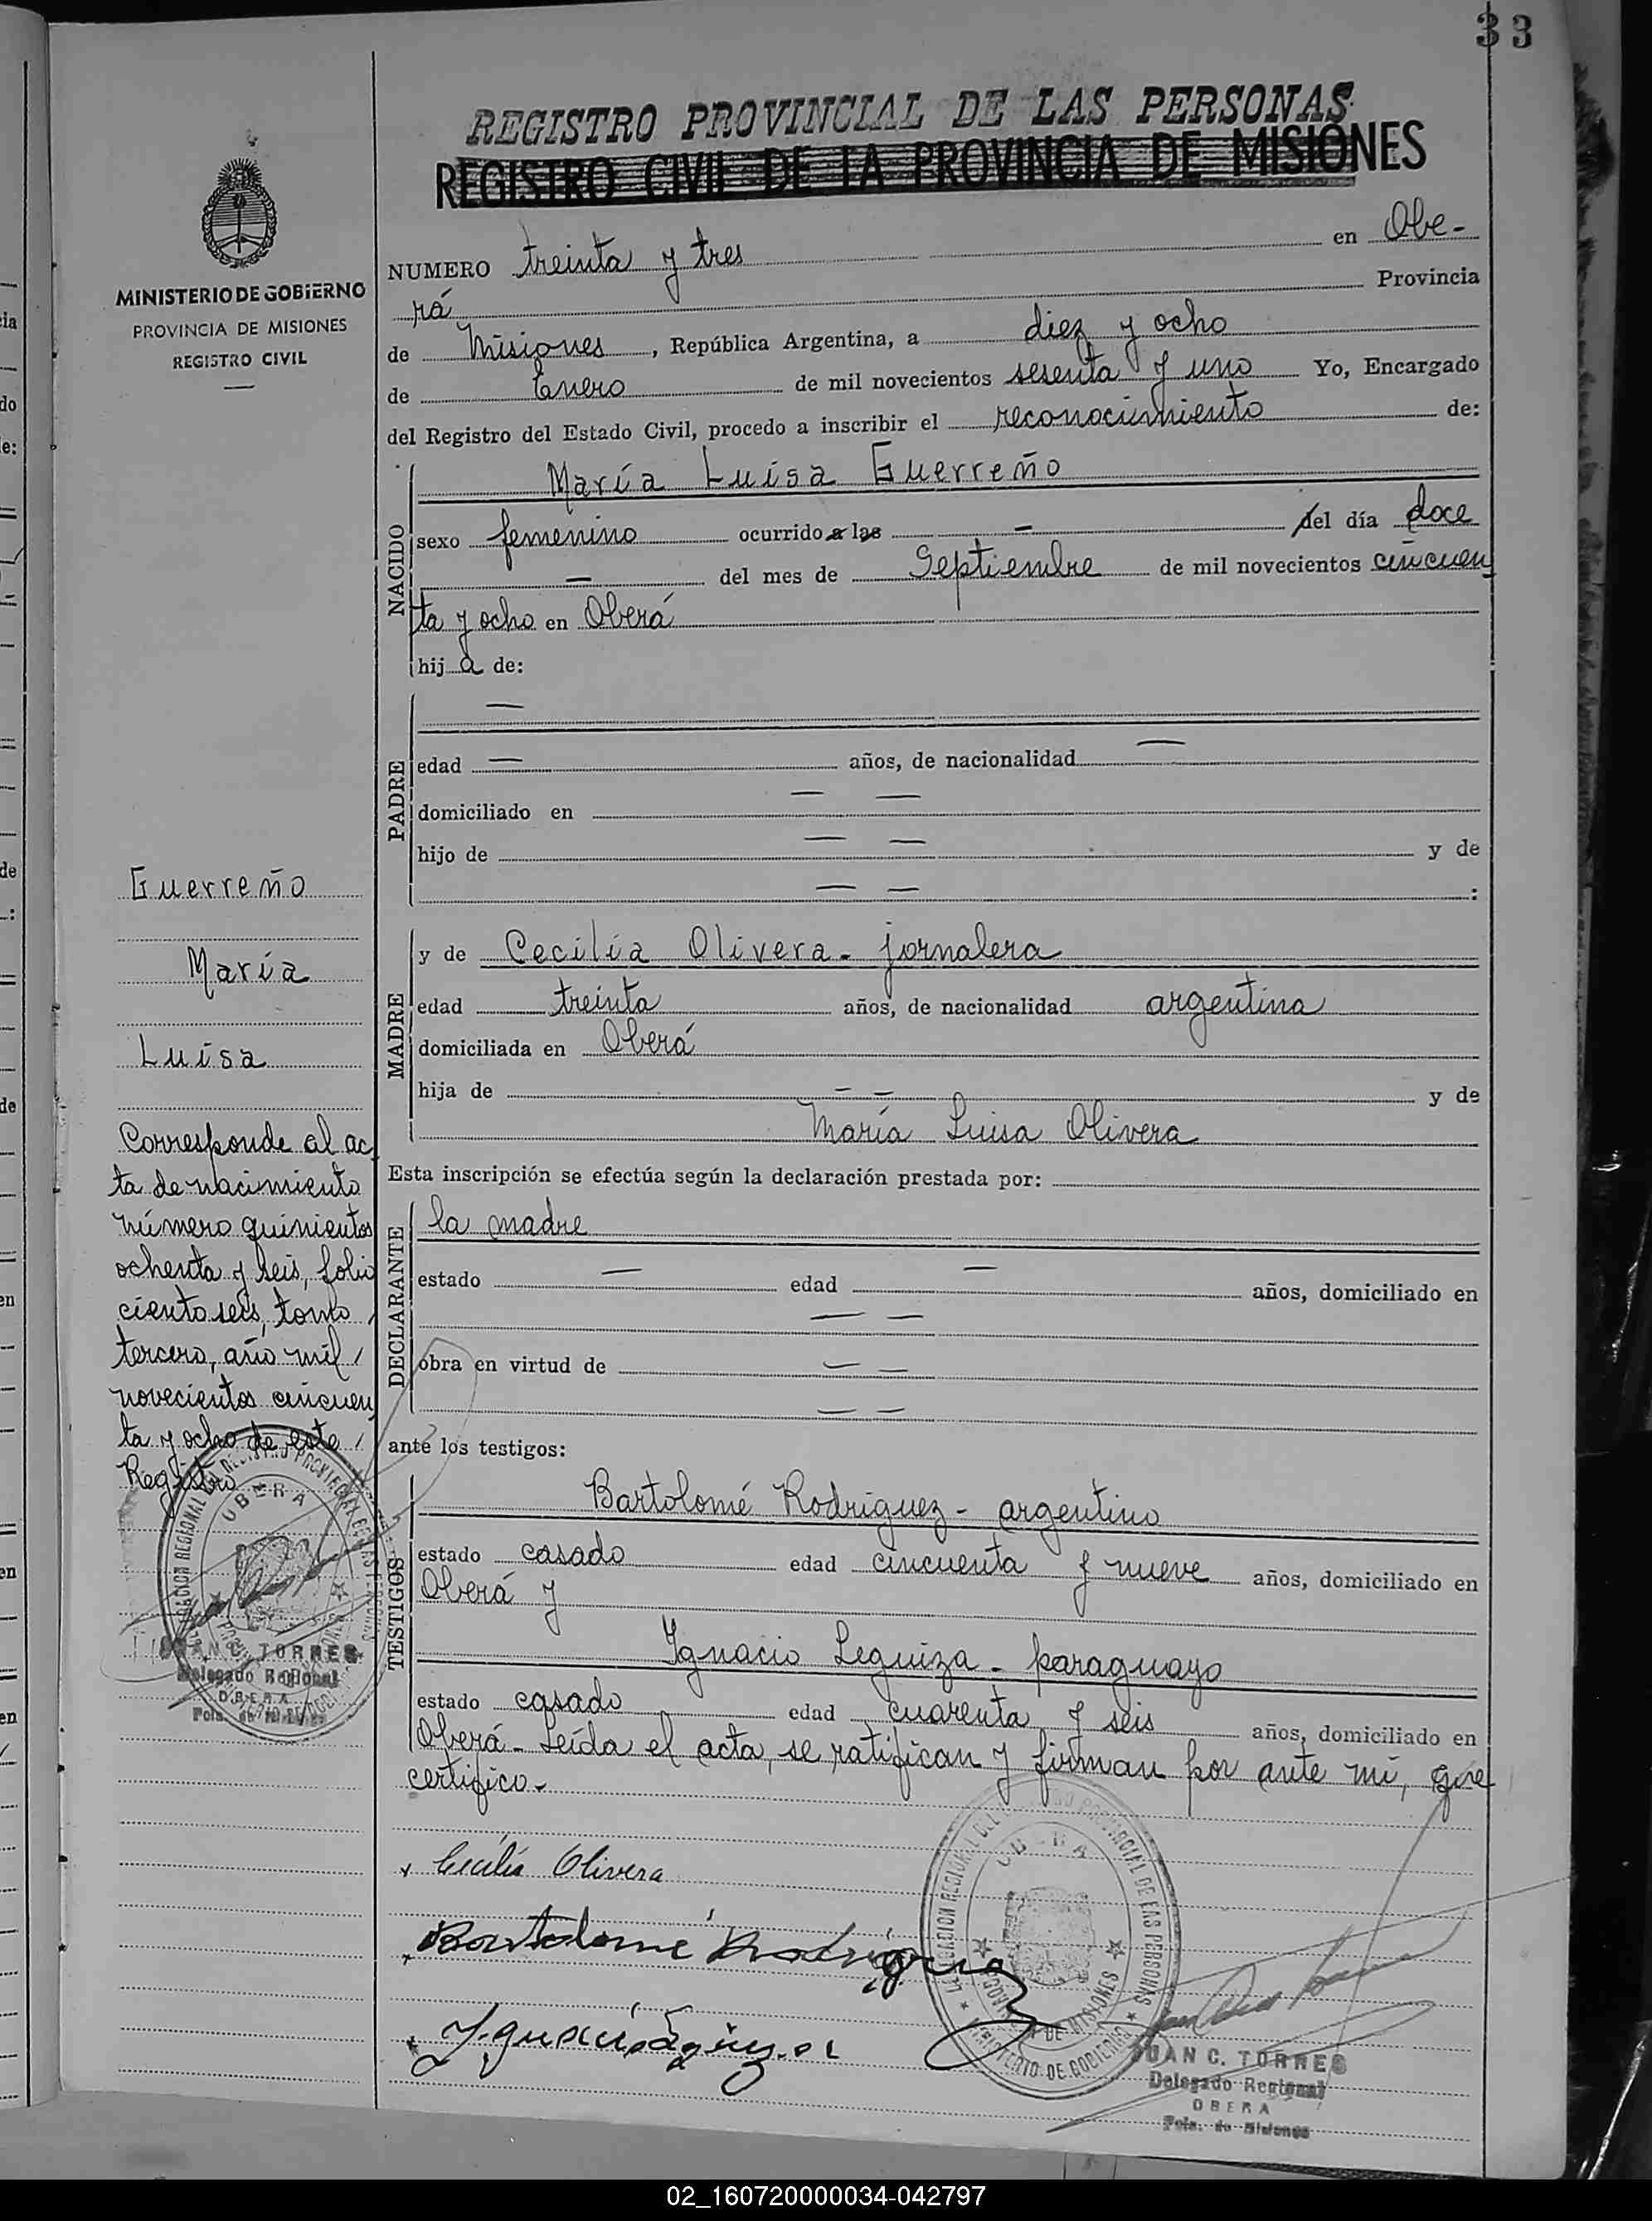 33
REGISTRO PROVINCIAL DE LAS PERSONAS
REGISTRO CIVIL DE LA PROVINCIA DE MISIONES
MINISTERIO DE GOBIERNO
PROVINCIA DE MISIONES
REGISTRO CIVIL
NUMERO treinta y tres en Obe-
rá Provincia
de Misiones, República Argentina, a diez y ocho
de Enero de mil novecientos sesenta y uno Yo, Encargado
del Registro del Estado Civil, procedo a inscribir el reconocimiento de:
NACIDO
María Luisa Guerreño
sexo femenino ocurrido a las — del día doce
— del mes de Septiembre de mil novecientos cincuen
ta y ocho en Oberá
hij a de:
PADRE
—
edad — años, de nacionalidad —
domiciliado en — —
hijo de — — y de
— — :
Guerreño
María
Luisa
MADRE
y de Cecilia Olivera - jornalera
edad treinta años, de nacionalidad argentina
domiciliada en Oberá
hija de — — y de
María Luisa Olivera
Corresponde al ac
ta de nacimiento
número quinientos
ochenta y seis, folio
ciento seis, tomo
tercero, año mil
novecientos cincuen
ta y ocho de este
Registro
Esta inscripción se efectúa según la declaración prestada por:
DECLARANTE
la madre
estado — edad — años, domiciliado en
— —
obra en virtud de — —
— —
ante los testigos:
TESTIGOS
Bartolomé Rodriguez - argentino
estado casado edad cincuenta y nueve años, domiciliado en
Oberá y
Ignacio Leguiza - paraguayo
estado casado edad cuarenta y seis años, domiciliado en
Oberá - Leída el acta, se ratifican y firman por ante mí, que
certifico.-
OBERA
JUAN C. TORRES
Delegado Regional
OBERA
Pcia. de Misiones
Cecilia Olivera
Bartolomé Rodriguez
DELEGACION REGIONAL DEL REGISTRO PROVINCIAL DE LAS PERSONAS
OBERA
PROVINCIA DE MISIONES
MINISTERIO DE GOBIERNO
JUAN C. TORRES
Delegado Regional
OBERA
Pcia. de Misiones
02_160720000034-042797